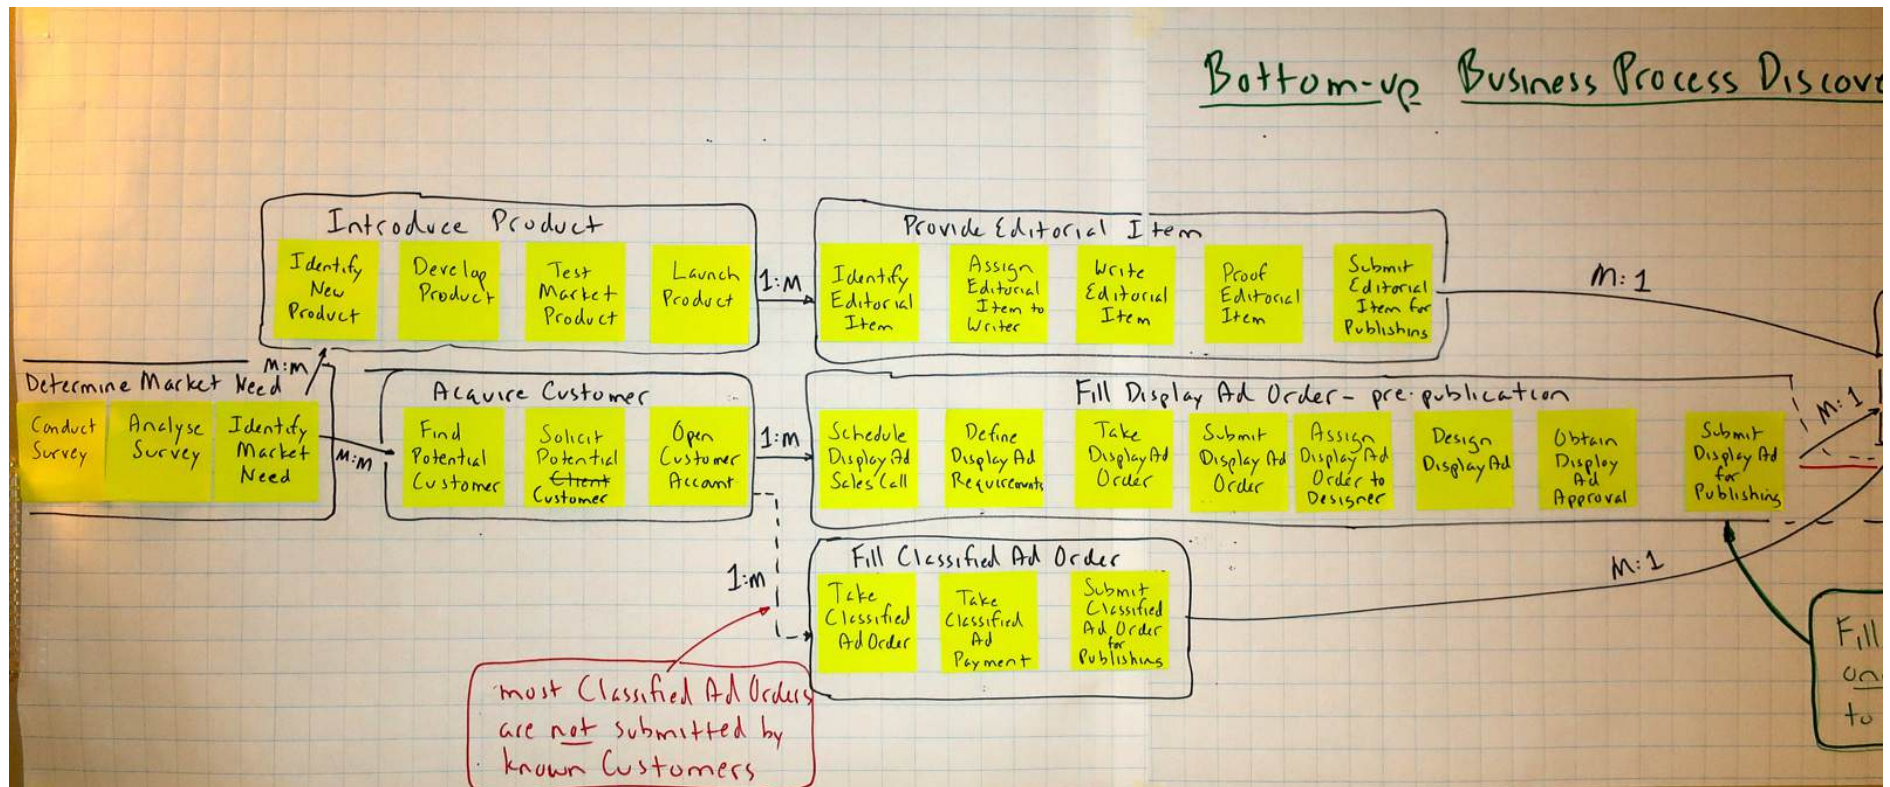 Bottom-up Business Process Discove
Introduce Product
Identify
New
Product
Develop
Product
Test
Market
Product
Launch
Product
1:M
Provide Editorial Item
Identify
Editorial
Item
Assign
Editorial
Item to
Writer
Write
Editorial
Item
Proof
Editorial
Item
Submit
Editorial
Item for
Publishing
M:1
Determine Market Need
M:M
Conduct
Survey
Analyse
Survey
Identify
Market
Need
M:M
Acquire Customer
Find
Potential
Customer
Solicit
Potential
Client
Customer
Open
Customer
Account
1:M
Fill Display Ad Order - pre-publication
Schedule
Display Ad
Sales Call
Define
Display Ad
Requirements
Take
Display Ad
Order
Submit
Display Ad
Order
Assign
Display Ad
Order to
Designer
Design
Display Ad
Obtain
Display
Ad
Approval
Submit
Display Ad
for
Publishing
M:1
1:M
Fill Classified Ad Order
Take
Classified
Ad Order
Take
Classified
Ad
Payment
Submit
Classified
Ad Order
for
Publishing
M:1
most Classified Ad Orders
are not submitted by
known Customers
Fill
to